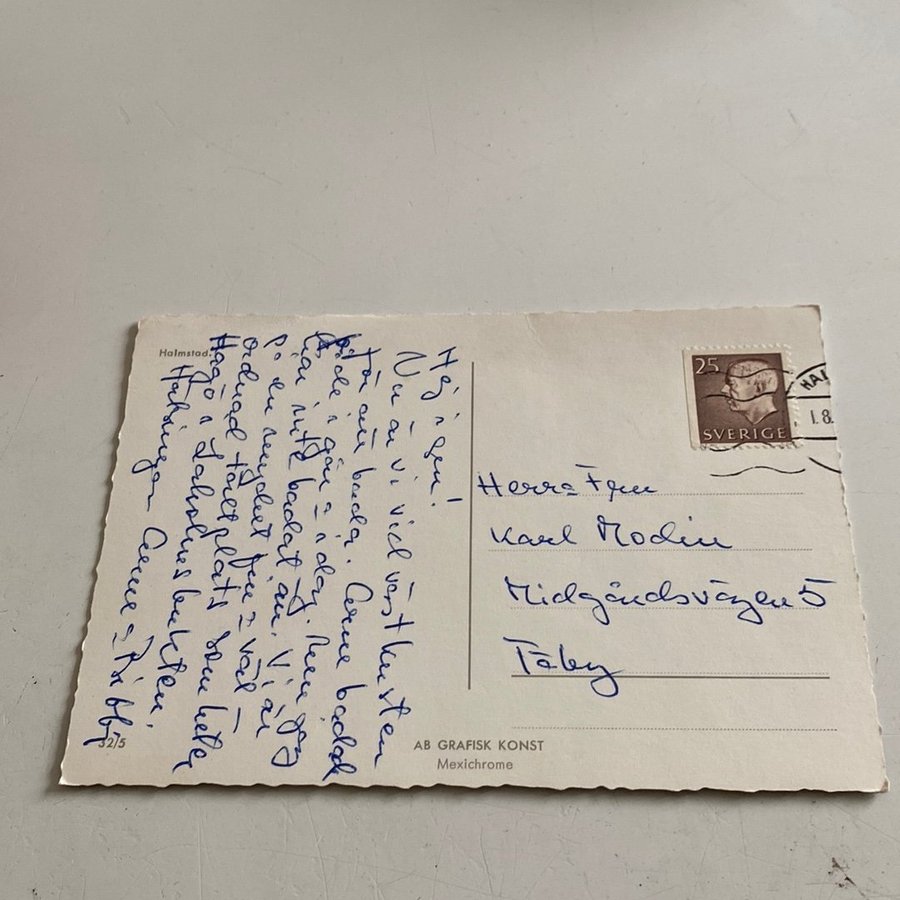 Halmstad.
Hej igen!
Nu är vi vid västkusten
för att bada. Arne badade
både i går = i dag. Men jag
har inte badat än. Vi är
på en mycket fin = väl
ordnad tältplats som heter
Hagö i Laholmsbukten.
Hälsningar Arne =
32/5
AB GRAFISK KONST
Mexichrome
25
SVERIGE
HAL
1.8
Herr = Fru
Karl Modin
Midgårdsvägen 5
Täby